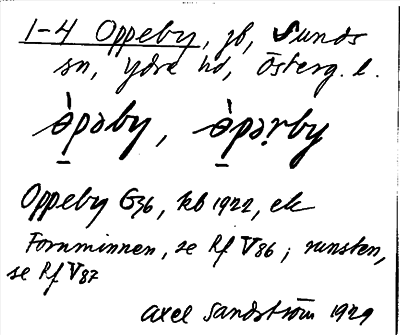 1-4 Oppeby, jb, Sunds
sn, Ydre hd, Österg. l.
ə̀pəby, ə̀pəṛby
Oppeby G36, kb 1922, ek
Fornminnen, se Rf V86; runsten,
se Rf V87
Axel Sandström 1929